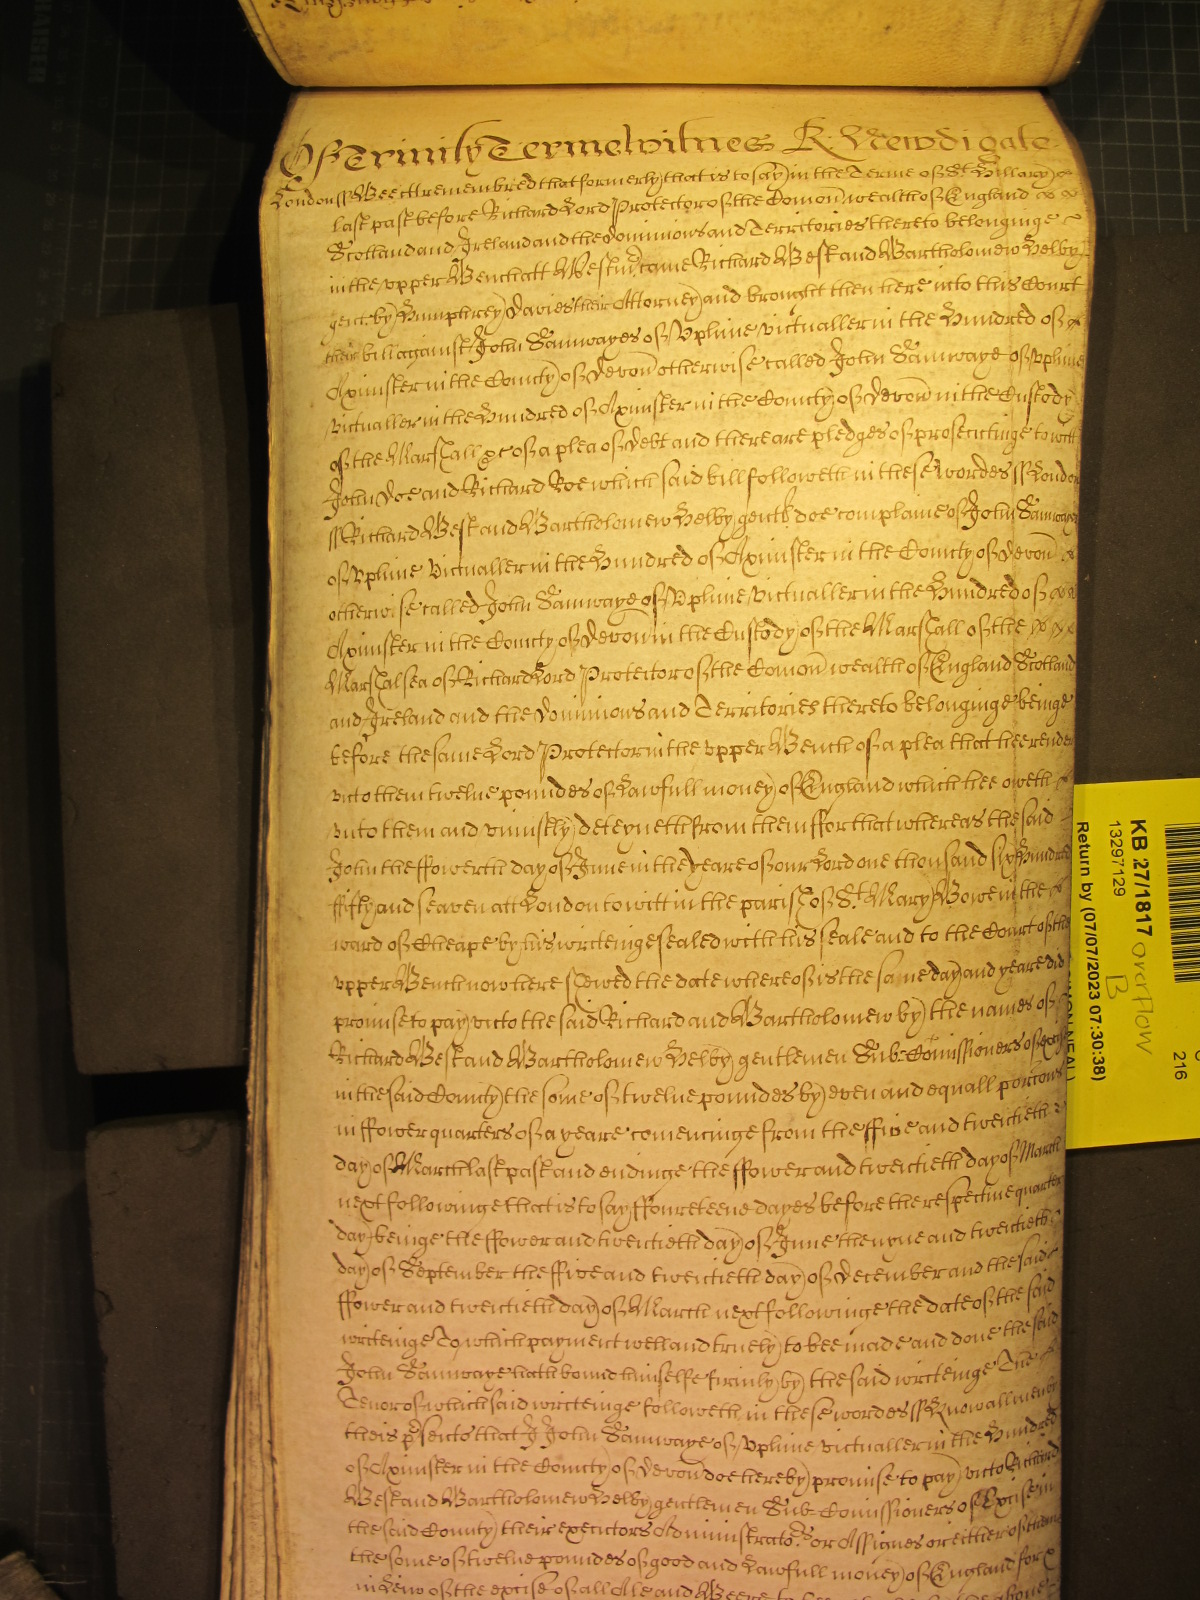 Of Trinity Terme witnes R. Newdigate
London ss Bee itt remembred that formerly that is to say in the Terme of St. Hillary
last past before Richard Lord Protector of the Comon wealth of England
Scotland and Ireland and the Dominions and Territories thereto belonginge
in the vpper Bench att Westmr came Richard West and Bartholomew Helby
gent. by Humphrey Davies their Attorney and brought then here into this Court
their bill against John Samwayes of Vplime victualler in the Hundred of
Axminster in the County of Devon otherwise called John Samwaye of Vplime
victualler in the Hundred of Axminster in the County of Devon in the Custody
of the Marshall &c of a plea of Debt and there are pledges of prosecutinge to witt
John Doe and Richard Roe which said bill followeth in these wordes ss London
ss Richard West and Bartholomew Helby gent doe complaine of John Samwayes
of Vplime Victualler in the Hundred of Axminster in the County of Devon
otherwise called John Samwaye of Vplime victualler in the Hundred of
Axminster in the County of Devon in the Custody of the Marshall of the
Marshalsea of Richard Lord Protector of the Comon wealth of England Scotland
and Ireland and the Dominions and Territories thereto belonginge beinge
before the same Lord Protector in the vpper Bench of a plea that hee render
vnto them twelue poundes of Lawfull money of England which hee oweth
vnto them and vniustly deteyneth from them ffor that whereas the said
John the ffowerth day of June in the yeare of our Lord one thousand six hundred
ffifty and seaven att London to witt in the parish of St. Mary Bowe in the
ward of Cheape by his writeinge sealed with his seale and to the Court of the
vpper Bench now here shewed the date whereof is the same day and yeare did
promise to pay vnto the said Richard and Bartholomew by the names of
Richard West and Bartholomew Helby gentlemen Sub-Comissioners of excise
in the said County the some of twelue poundes by even and equall porcons
in ffower quarters of a yeare comencinge from the ffiue and twentieth
day of March last past and endinge the ffower and twentieth day of March
next followinge that is to say ffoureteene dayes before the respective quarter
day beinge the ffower and twentieth day of June the nyne and twentieth
day of September the ffive and twentieth day of December and the said
ffower and twentieth day of March next followinge the date of the said
writeinge To which payment well and truely to bee made and done the said
John Samwaye hath bound himselfe firmly by the said writeinge The
Tenor of which said writeinge followeth in these wordes ss Know all men by
theis presents that I John Samwaye of Vplime victualler in the Hundred
of Axminster in the County of Devon doe hereby promise to pay vnto Richard
West and Bartholomew Helby gentlemen Sub-Comissioners of Excise in
the said County their executors Administrators or Assignes or either of them
the some of twelue poundes of good and Lawfull money of England for
in Liew of the excise of all Ale and Beere to bee
KB 27/1817 overflow
13297129 B
Return by (07/07/2023 07:30:38)
216